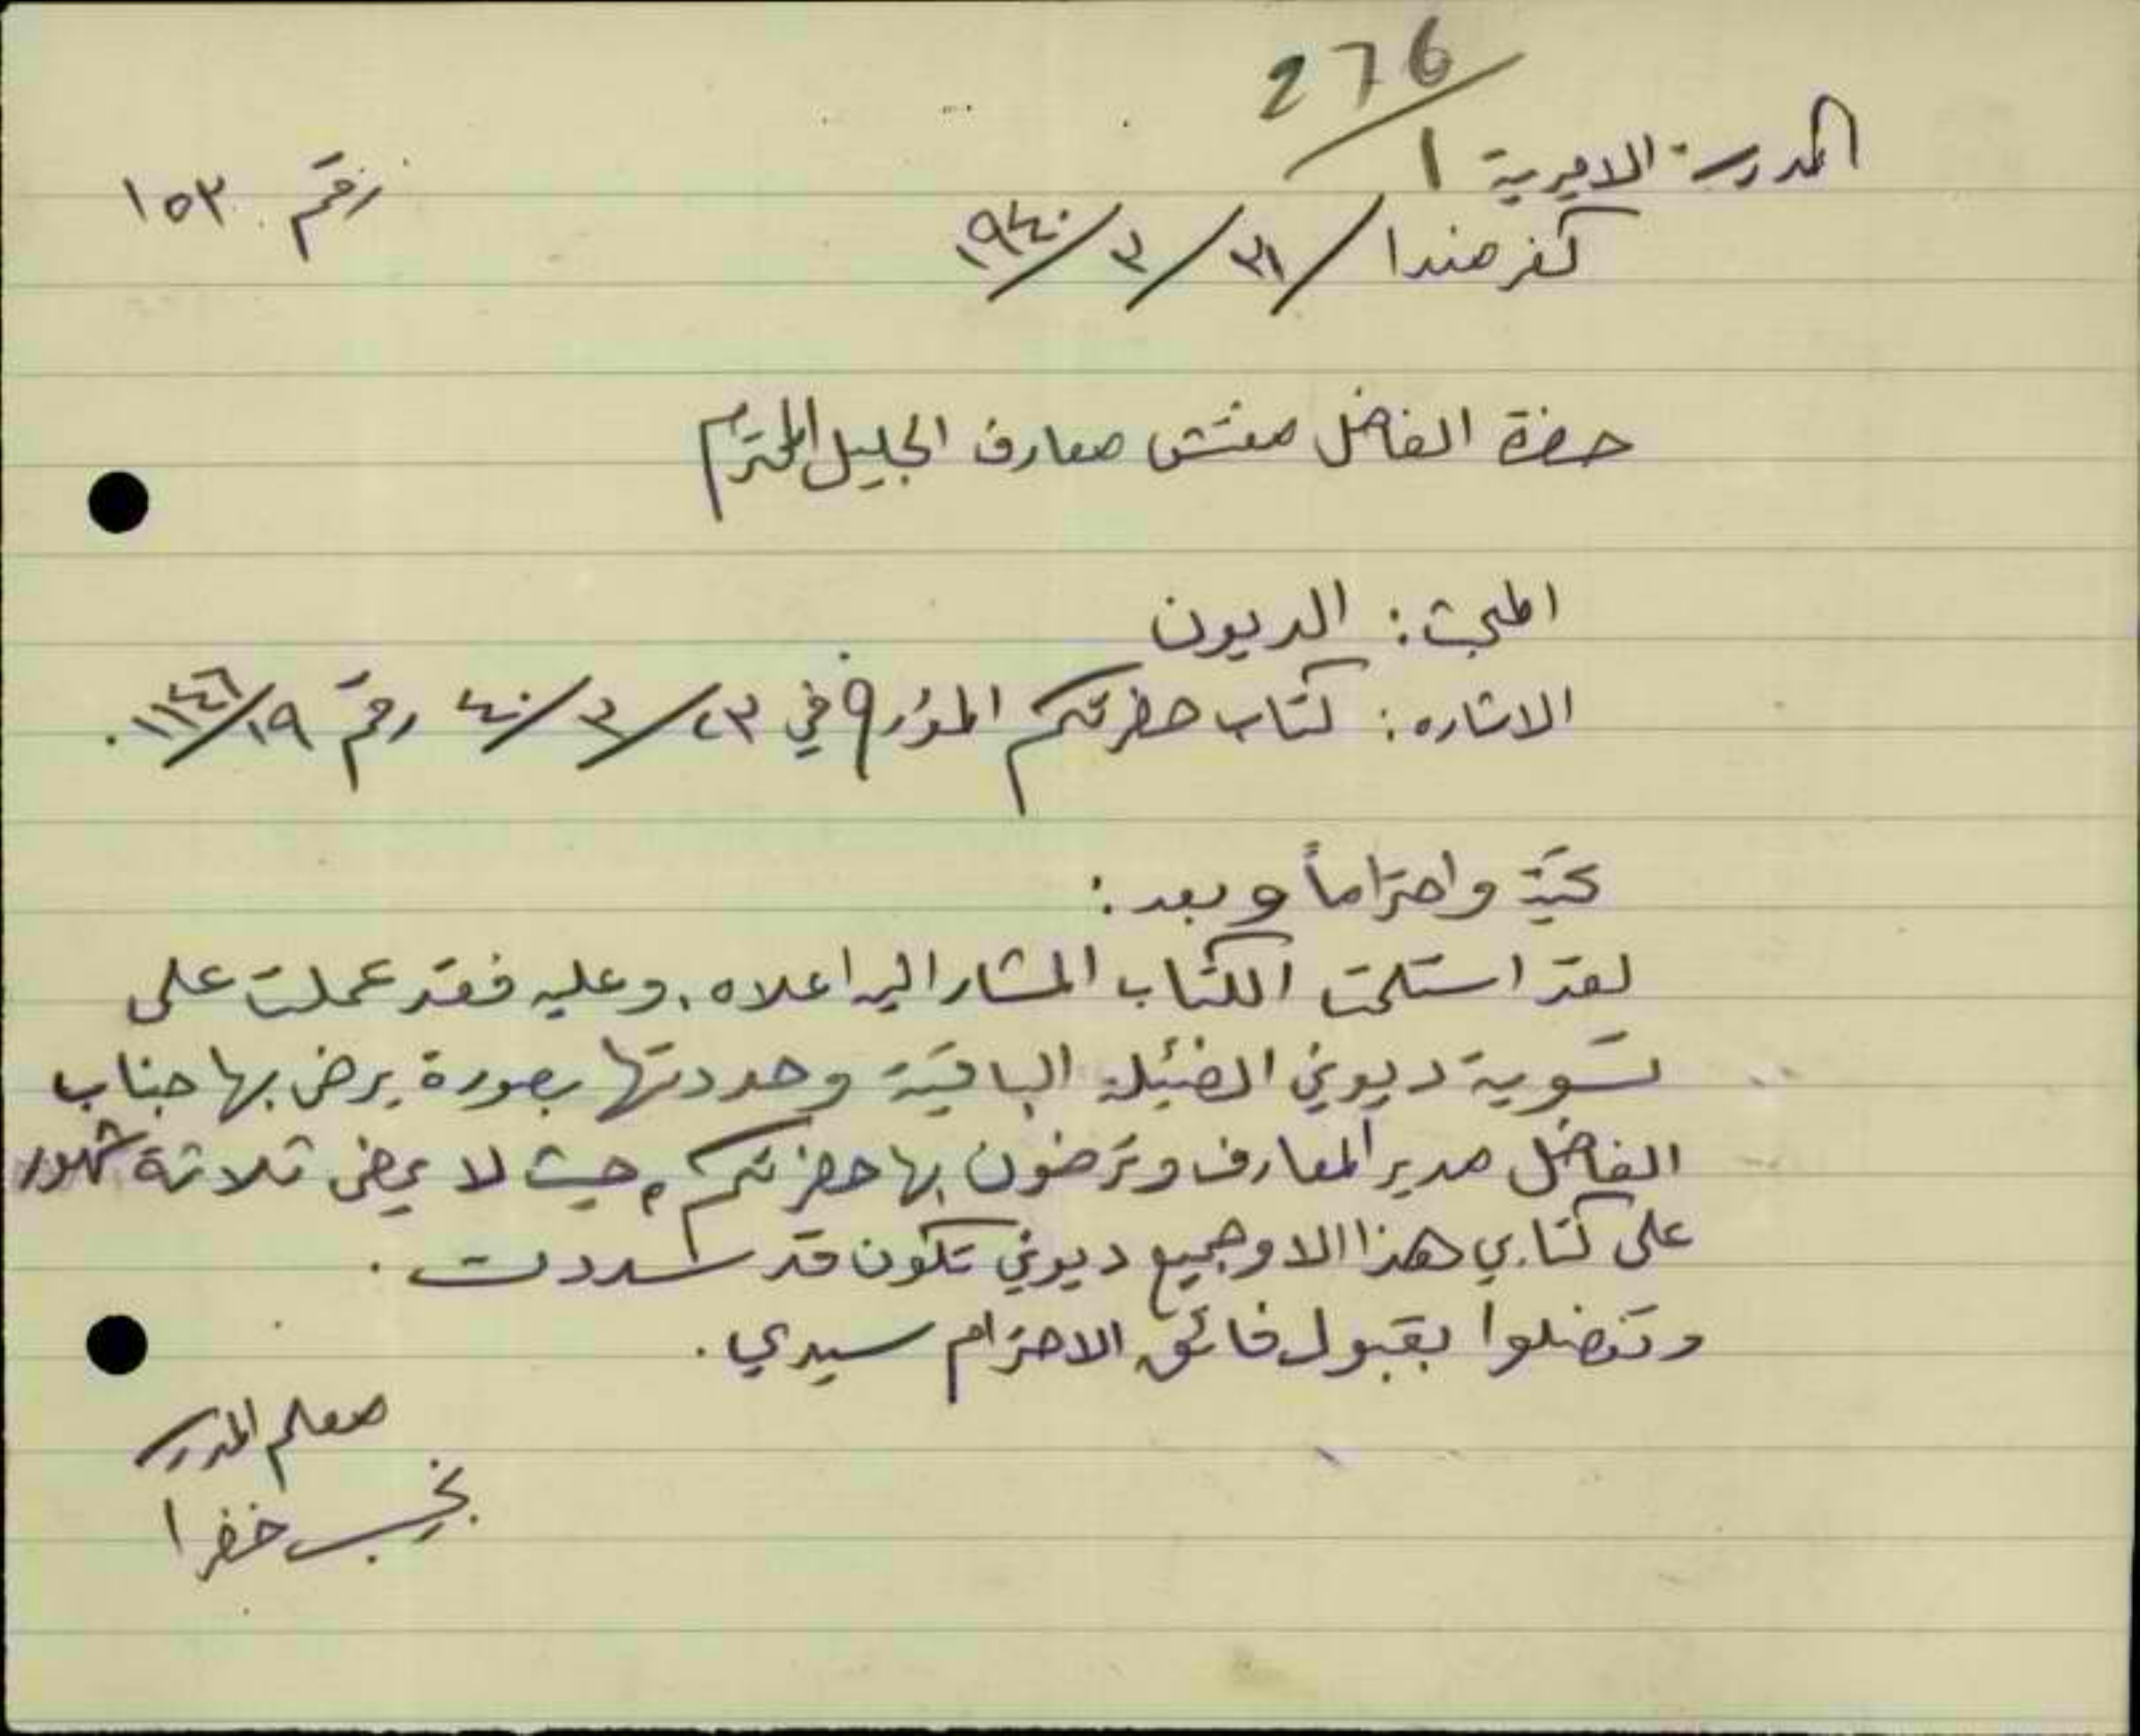 276/1
المدرسة الاميرية
رقم ١٥٣
كفرمندا ٣١/٣/١٩٤٠
حضرة الفاضل مفتش معارف الجليل المحترم
المبحث: الديون
الاشاره: كتاب حضرتكم المؤرخ في ٢٣/٣/٤٠ رقم ١٩/١١٤٦.
تحية واحتراماً وبعد:
لقد استلمت الكتاب المشار اليه اعلاه، وعليه فقد عملت على
تسوية ديوني الضئيلة الباقية وحددتها بصورة يرضى بها جناب
الفاضل مدير المعارف وترضون بها حضرتكم، حيث لا يمضى ثلاثة شهور
على كتابي هذا الا وجميع ديوني تكون قد سددت.
وتفضلوا بقبول فائق الاحترام سيدي.
معلم المدرسة
نجيب خفرا